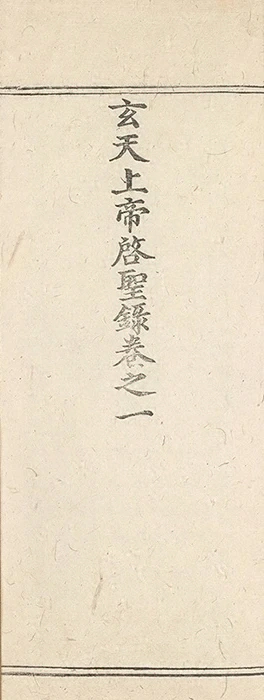 玄天上帝啓聖錄卷之一